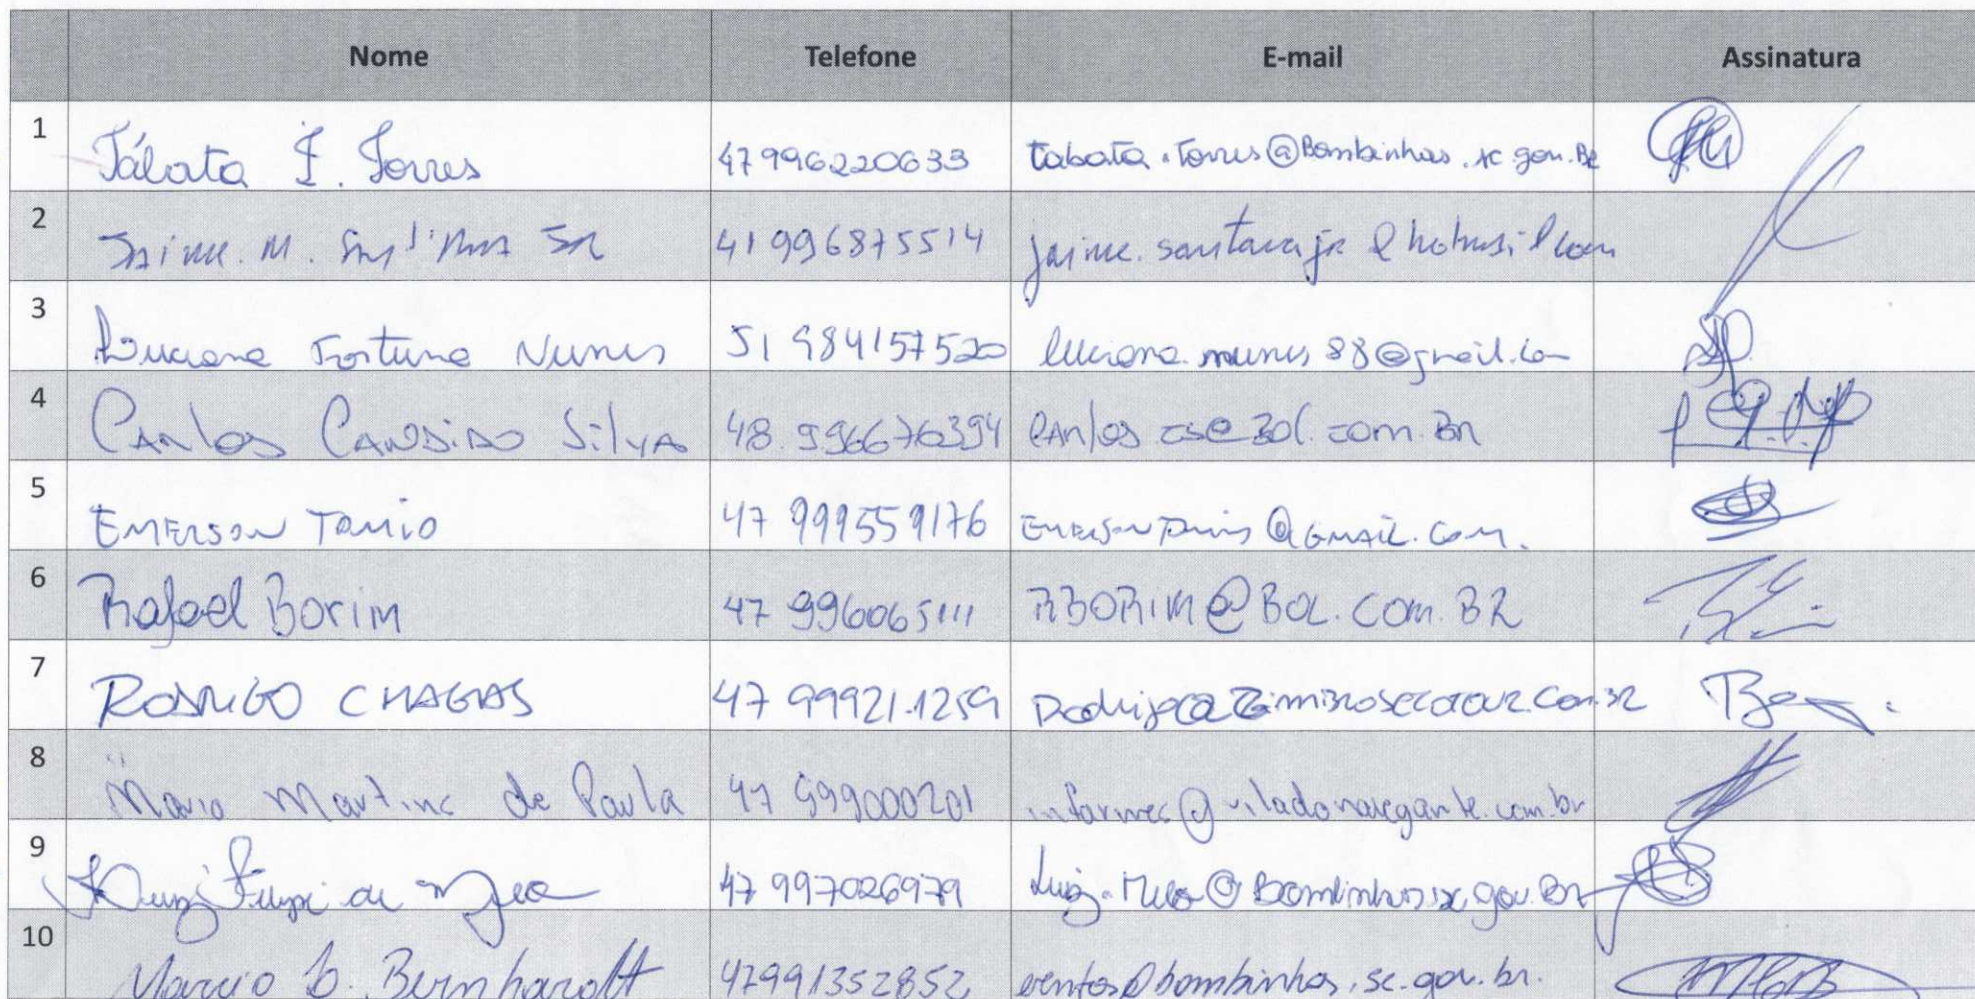 Nome Telefone E-mail Assinatura
1 Tábata F. Torres 47996220633 tabata.torres@Bombinhas.sc.gov.Br
2 Jaime. M. Sant'Ana Jr 41996875514 jaime.santanajr@hotmail.com
3 Luciana Fortuna Nunes 51 984157520 luciana.nunes88@gmail.com
4 Carlos Candido Silva 48.996676394 carlos cs@Bol.com.Br
5 EMERSON TOMIO 47 999559176 @GMAIL.COM.
6 Rafael Borim 47 996065111 RBORIM@BOL.COM.BR
7 RODRIGO CHAGAS 47 99921.1259
8 Mario Martins de Paula 47 999000201 informes@viladonavegante.com.br
9 Luiz Filipi de Melo 47 997026979 Luiz.Melo@Bombinhas.sc.gov.Br
10 Marcio D. Bernhardt 47991352852 eventos@bombinhas.sc.gov.br.